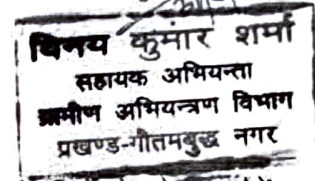 विनय कुमार शर्मा
सहायक अभियन्ता
ग्रामीण अभियन्त्रण विभाग
प्रखण्ड-गौतमबुद्ध नगर